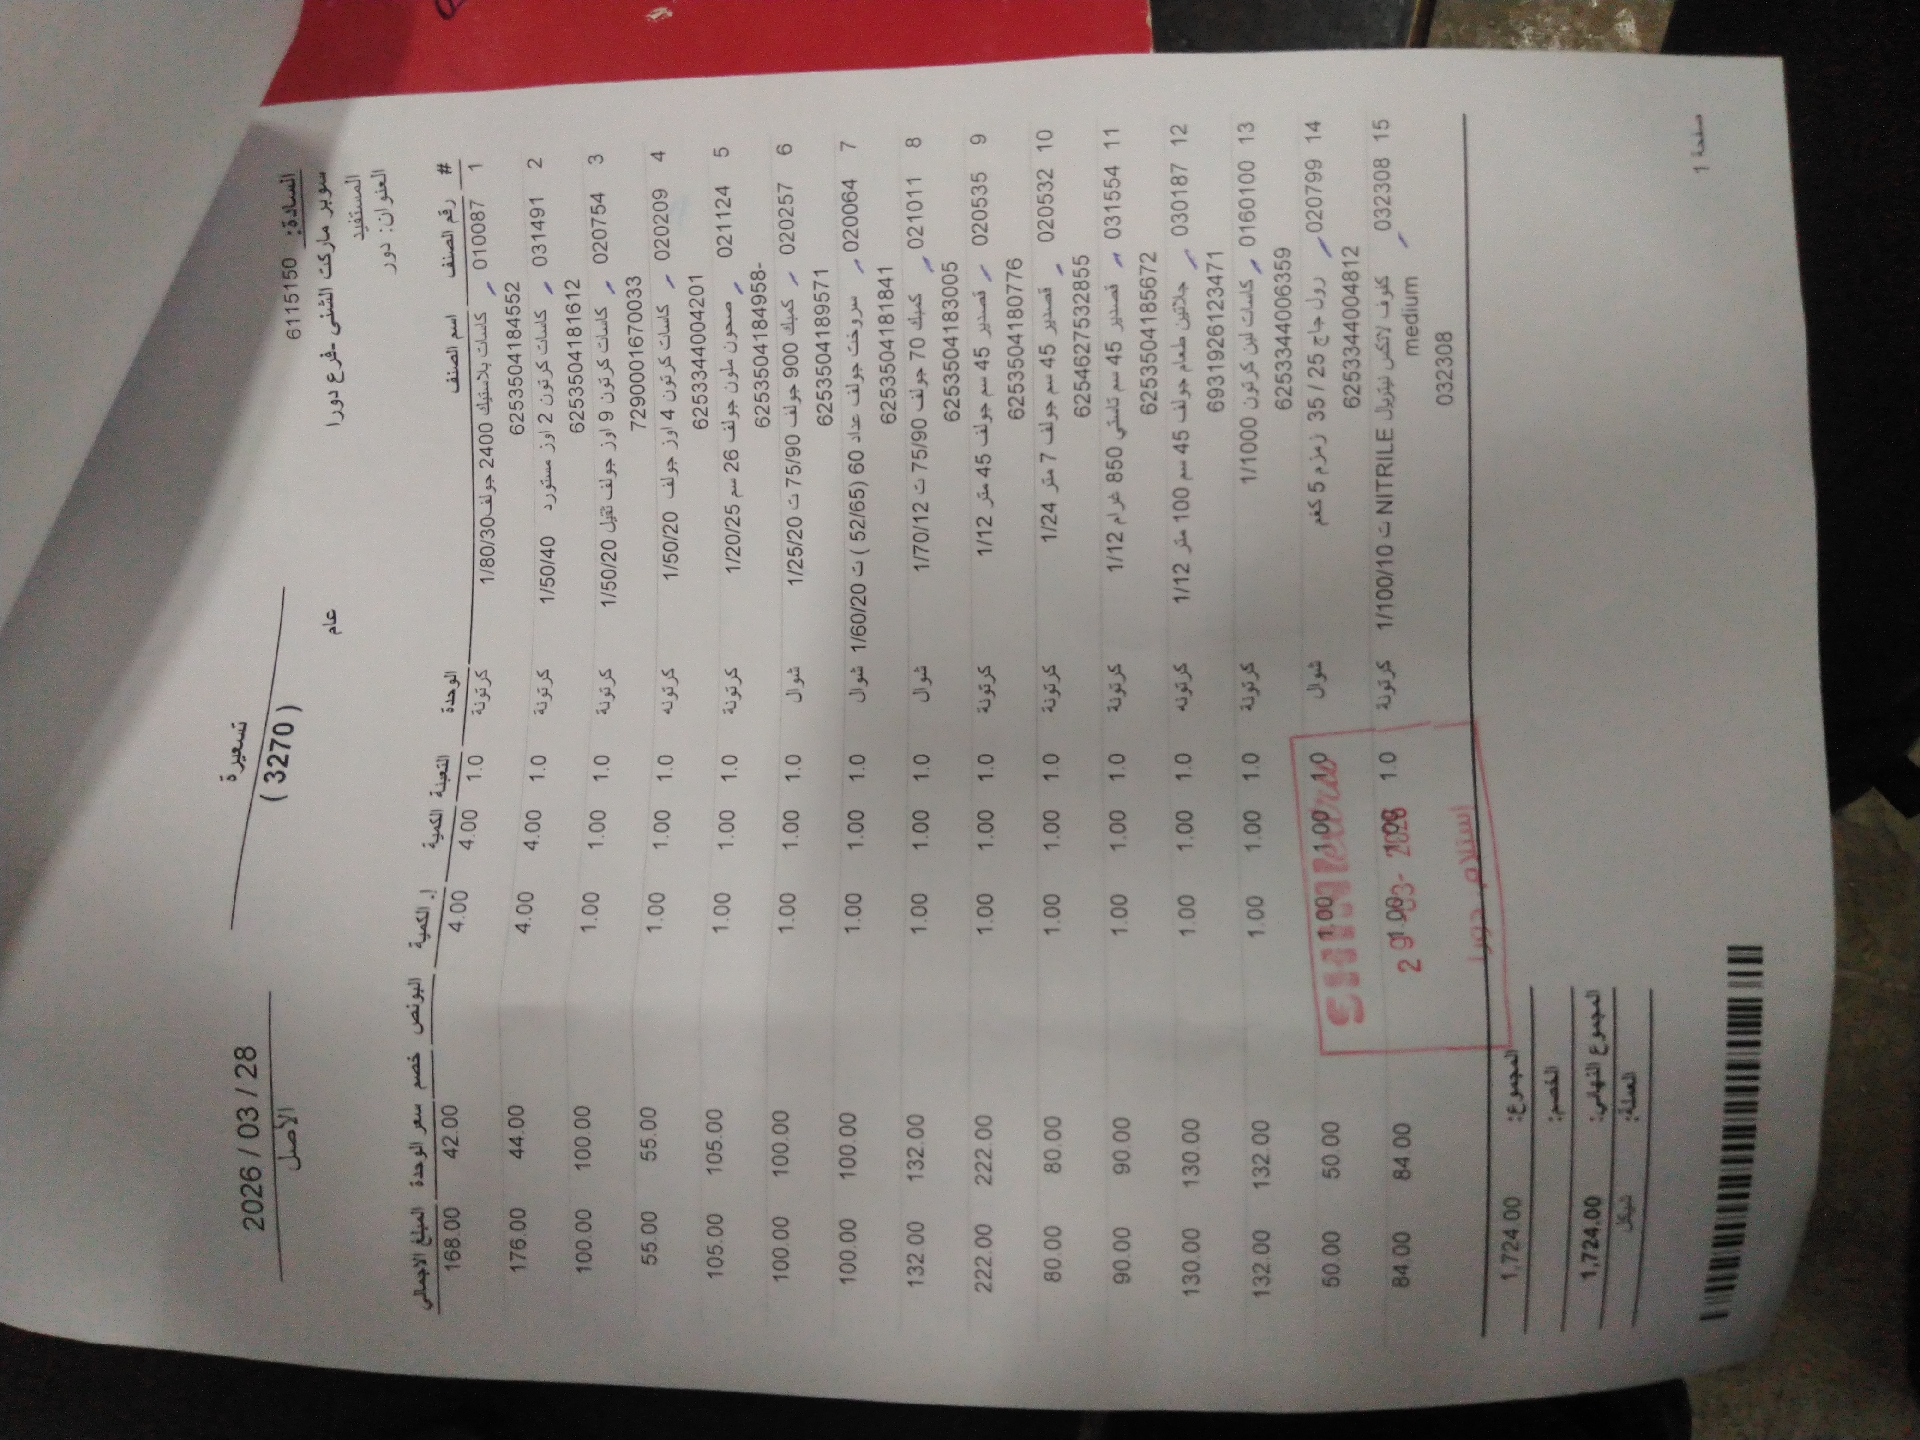 تسعيرة
( 3270 )
2026 / 03 / 28
الأصل
السادة: 6115150
سوبر ماركت الشني -فرع دورا
عام
المستفيد
العنوان: دورا
# رقم الصنف اسم الصنف الوحدة التعبئة الكمية إ. الكمية البونص خصم سعر الوحدة المبلغ الاجمالي
1 010087 كاسات بلاستيك 2400 جولف 1/80/30 كرتونة 1.0 4.00 4.00 42.00 168.00
6253504184552
2 031491 كاسات كرتون 2 اوز مستورد 1/50/40 كرتونة 1.0 4.00 4.00 44.00 176.00
6253504181612
3 020754 كاسات كرتون 9 اوز جولف ثقيل 1/50/20 كرتونة 1.0 1.00 1.00 100.00 100.00
7290001670033
4 020209 كاسات كرتون 4 اوز جولف 1/50/20 كرتونه 1.0 1.00 1.00 55.00 55.00
6253344004201
5 021124 صحون ملون جولف 26 سم 1/20/25 كرتونة 1.0 1.00 1.00 105.00 105.00
6253504184958-
6 020257 كمبك 900 جولف 75/90 ت 1/25/20 شوال 1.0 1.00 1.00 100.00 100.00
6253504189571
7 020064 سروخت جولف عداد 60 (52/65 ) ت 1/60/20 شوال 1.0 1.00 1.00 100.00 100.00
6253504181841
8 021011 كمبك 70 جولف 75/90 ت 1/70/12 شوال 1.0 1.00 1.00 132.00 132.00
6253504183005
9 020535 قصدير 45 سم جولف 45 متر 1/12 كرتونة 1.0 1.00 1.00 222.00 222.00
6253504180776
10 020532 قصدير 45 سم جولف 7 متر 1/24 كرتونة 1.0 1.00 1.00 80.00 80.00
6254627532855
11 031554 قصدير 45 سم كاستي 850 غرام 1/12 كرتونة 1.0 1.00 1.00 90.00 90.00
6253504185672
12 030187 جلاتين طعام جولف 45 سم 100 متر 1/12 كرتونه 1.0 1.00 1.00 130.00 130.00
6931926123471
13 0160100 كاسات لبن كرتون 1/1000 كرتونة 1.0 1.00 1.00 132.00 132.00
6253344006359
14 020799 رول جاج 25 / 35 زمزم 5 كغم شوال 1.0 1.00 1.00 50.00 50.00
6253344004812
15 032308 كفوف لاتكس نيتريل NITRILE ت 1/100/10 كرتونة 1.0 1.00 1.00 84.00 84.00
medium
032308
29 -03- 2026
استلام دورا
المجموع: 1,724.00
الخصم:
المجموع النهائي: 1,724.00
العملة: شيكل
صفحة 1